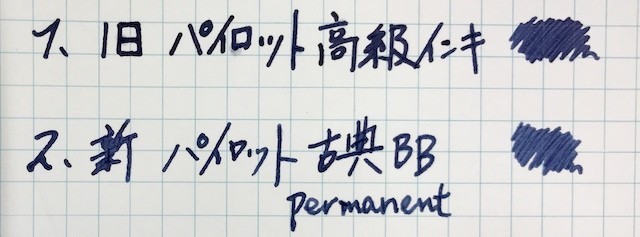 1、旧 パイロット高級インキ
2、新 パイロット古典BB
permanent